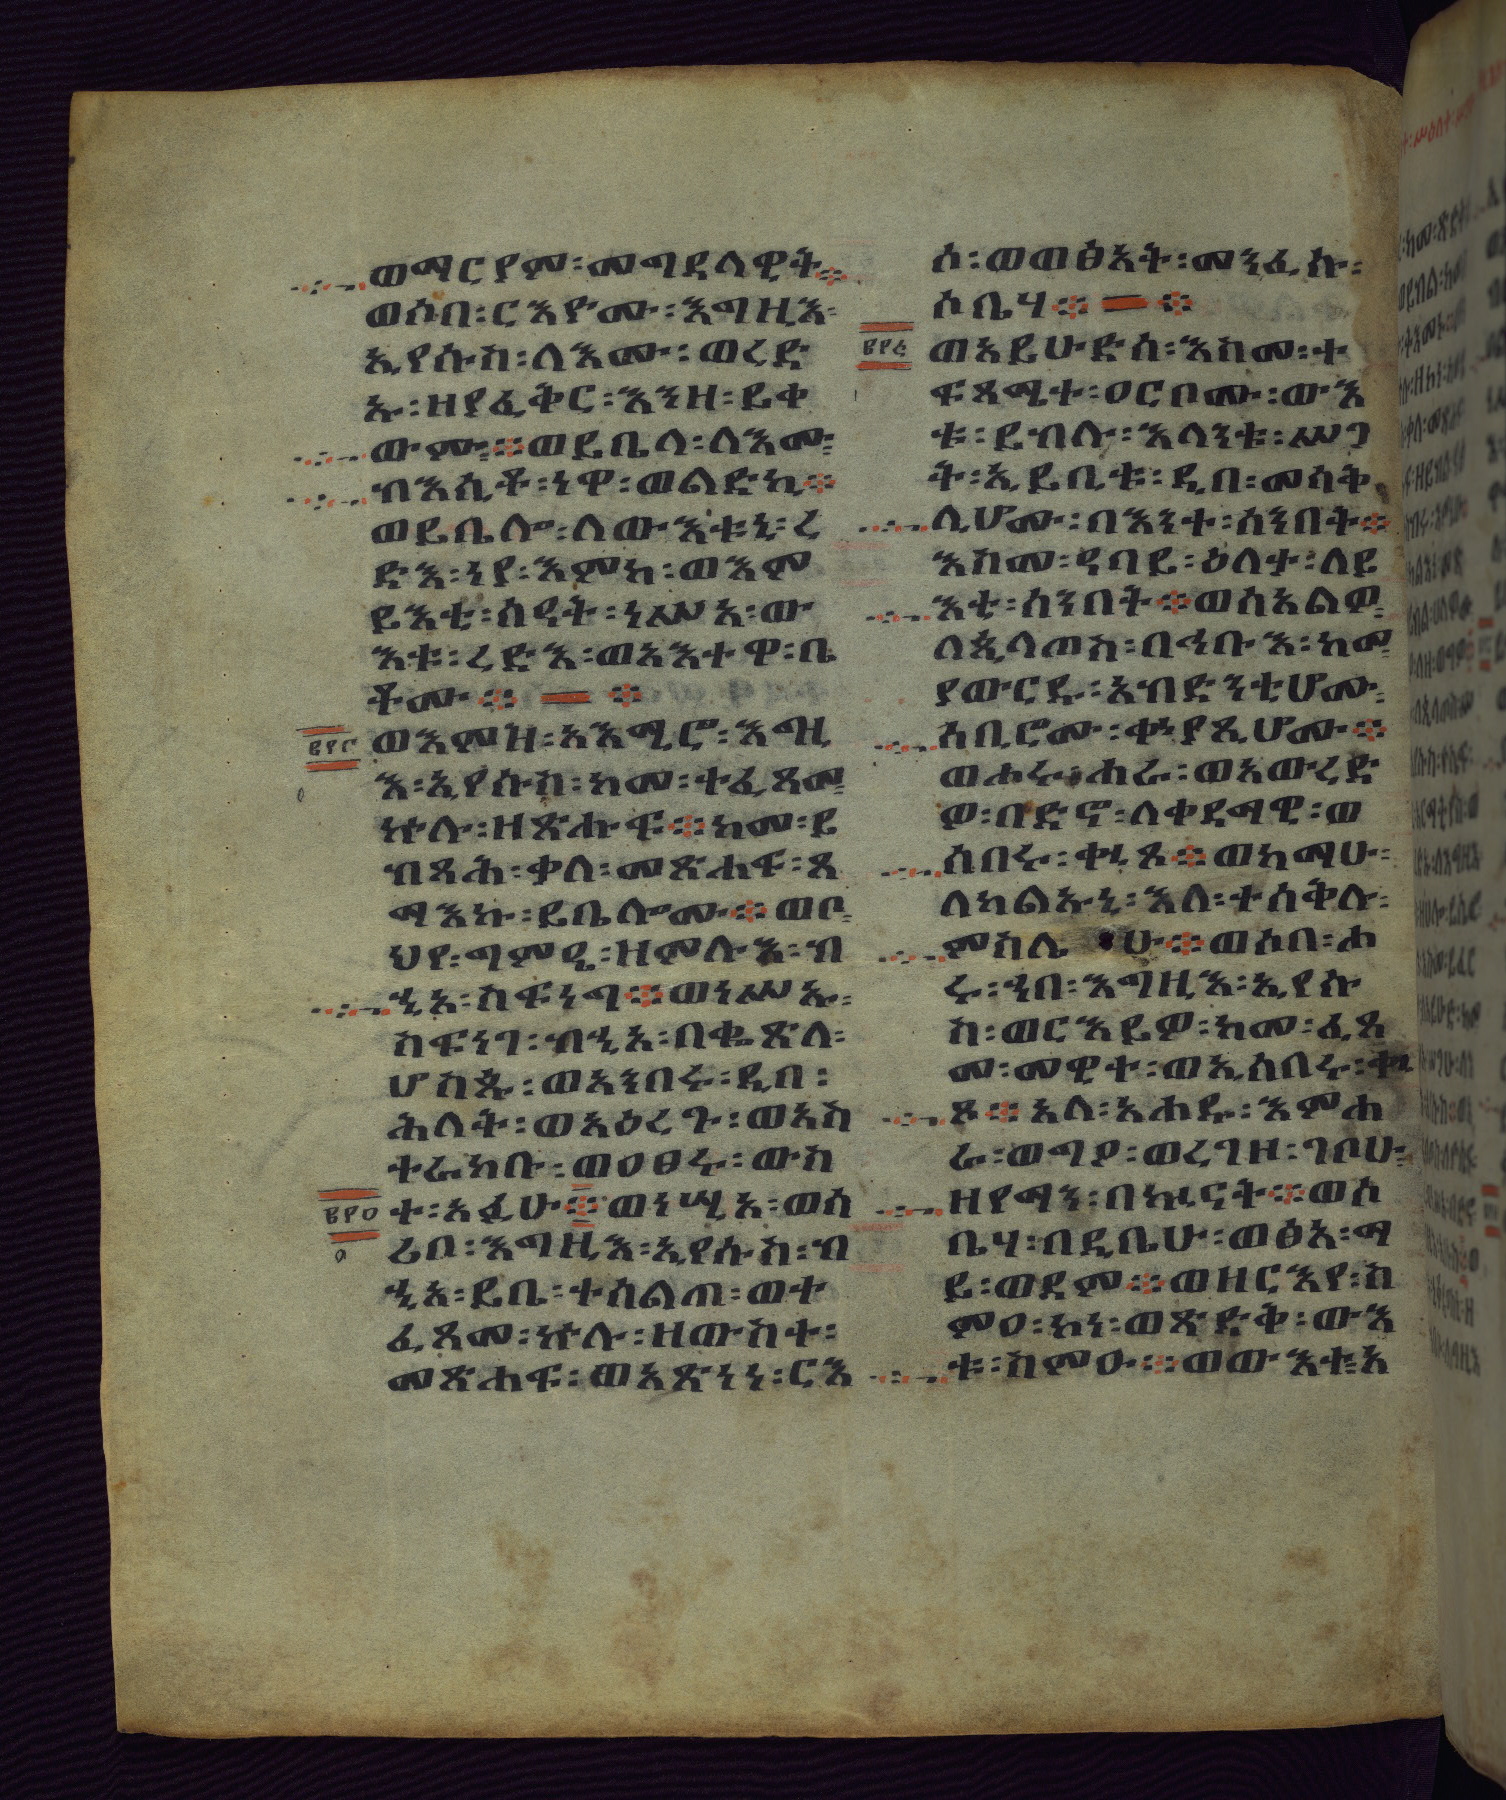 ወማርያም፡መግደላዊት፨
ወሶበ፡ርእዮሙ፡እግዚእ፡
ኢየሱስ፡ለእሙ፡ወረድ
ኡ፡ዘያፈቅር፡እንዘ፡ይቀ
ውሙ፡፨ወይቤላ፡ለእሙ፡
ብእሲቶ፡ነዋ፡ወልድኪ፨
ወይቤሎ፡ለውእቱኒ፡ረ
ድእ፡ነያ፡እምከ፡ወእም
ይእቲ፡ሰዓት፡ነሥአ፡ው
እቱ፡ረድእ፡ወአእተዋ፡ቤ
ቶሙ፨—፨
፪፻፫
ወእምዝ፡አእሚሮ፡እግዚ
እ፡ኢየሱስ፡ከመ፡ተፈጸመ፡
ኵሉ፡ዘጽሑፍ፨ከመ፡ይ
ብጻሕ፡ቃለ፡መጽሐፍ፡ጸ
ማእኩ፡ይቤሎሙ፨ወቦ፡
ህየ፡ግምዔ፡ዘምሉእ፡ብ
ሂአ፡ስፍነግ፨ወነሥኡ፡
ስፍነገ፡ብሂአ፡በቈጽለ፡
ሆስጱ፡ወአንበሩ፡ዲበ፡
ሕለት፡ወአዕረጉ፡ወአስ
ተራከቡ፡ወዐፀሩ፡ውስ
ተ፡አፉሁ፨ወነሢአ፡ወሰ
፪፻፬
ሪቦ፡እግዚእ፡ኢየሱስ፡ብ
ሂአ፡ይቤ፡ተሰልጠ፡ወተ
ፈጸመ፡ኵሉ፡ዘውስተ፡
መጽሐፍ፡ወአጽነነ፡ርእ
ሶ፡ወወፅአት፡መንፈሱ፡
ሶቤሃ፨—፨
፪፻፭
ወአይሁድሰ፡እስመ፡ተ
ፍጻሜተ፡ዐርቦሙ፡ውእ
ቱ፡ይብሉ፡እላንቱ፡ሥጋ
ት፡ኢይቢቱ፡ዲበ፡መስቅ
ሊሆሙ፡በእንተ፡ሰንበት፨
እስመ፡ዓባይ፡ዕለት፡ለይ
እቲ፡ሰንበት፨ወሰአልዎ፡
ለጲላጠስ፡በኀቡእ፡ከመ፡
ያውርዱ፡አብድንቲሆሙ፡
አቢሮሙ፡ቍያጺሆሙ፨
ወሐሩ፡ሐራ፡ወአውረድ
ዎ፡በድኖ፡ለቀዳማዊ፡ወ
ሰበሩ፡ቍጸ፨ወከማሁ፡
ለካልኡኒ፡እለ፡ተሰቅሉ፡
ምስሌሁ፨ወሶበ፡ሐ
ሩ፡ኀበ፡እግዚእ፡ኢየሱ
ስ፡ወርእይዎ፡ከመ፡ፈጸ
መ፡መዊተ፡ወኢሰበሩ፡ቍ
ጸ፨አላ፡አሐዱ፡እምሐ
ራ፡ወግኦ፡ወረገዘ፡ገቦሁ፡
ዘየማን፡በኵናት፨ወሰ
ቤሃ፡በዲቤሁ፡ወፅአ፡ማ
ይ፡ወደም፨ወዘርእየ፡ስ
ምዐ፡ኮነ፡ወጽድቅ፡ውእ
ቱ፡ስምዑ፨ወውእቱ፡አ